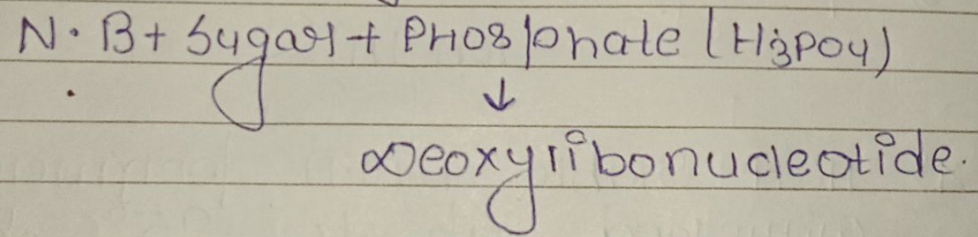 N.B + Sugar + PHosphate (H3PO4)
↓
Deoxyribonucleotide.